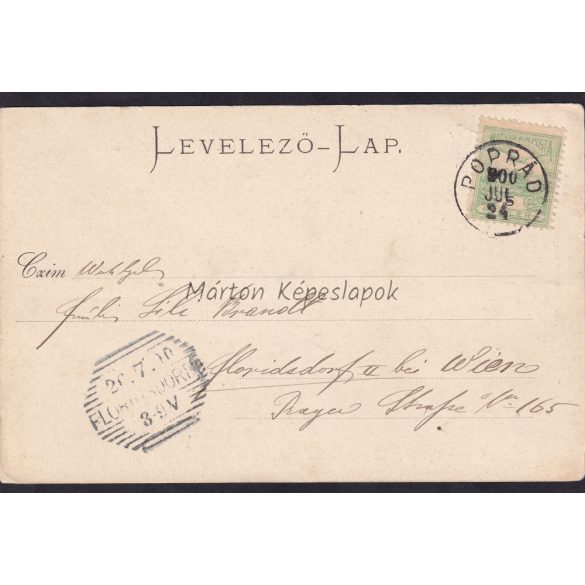 LEVELEZŐ-LAP.
POPRÁD
900
JUL
24
Czim
Márton Képeslapok
Brandt
Floridsdorf II bei Wien
Prager Straße No 165
26.7.00
FLORIDSDORF
8-9V